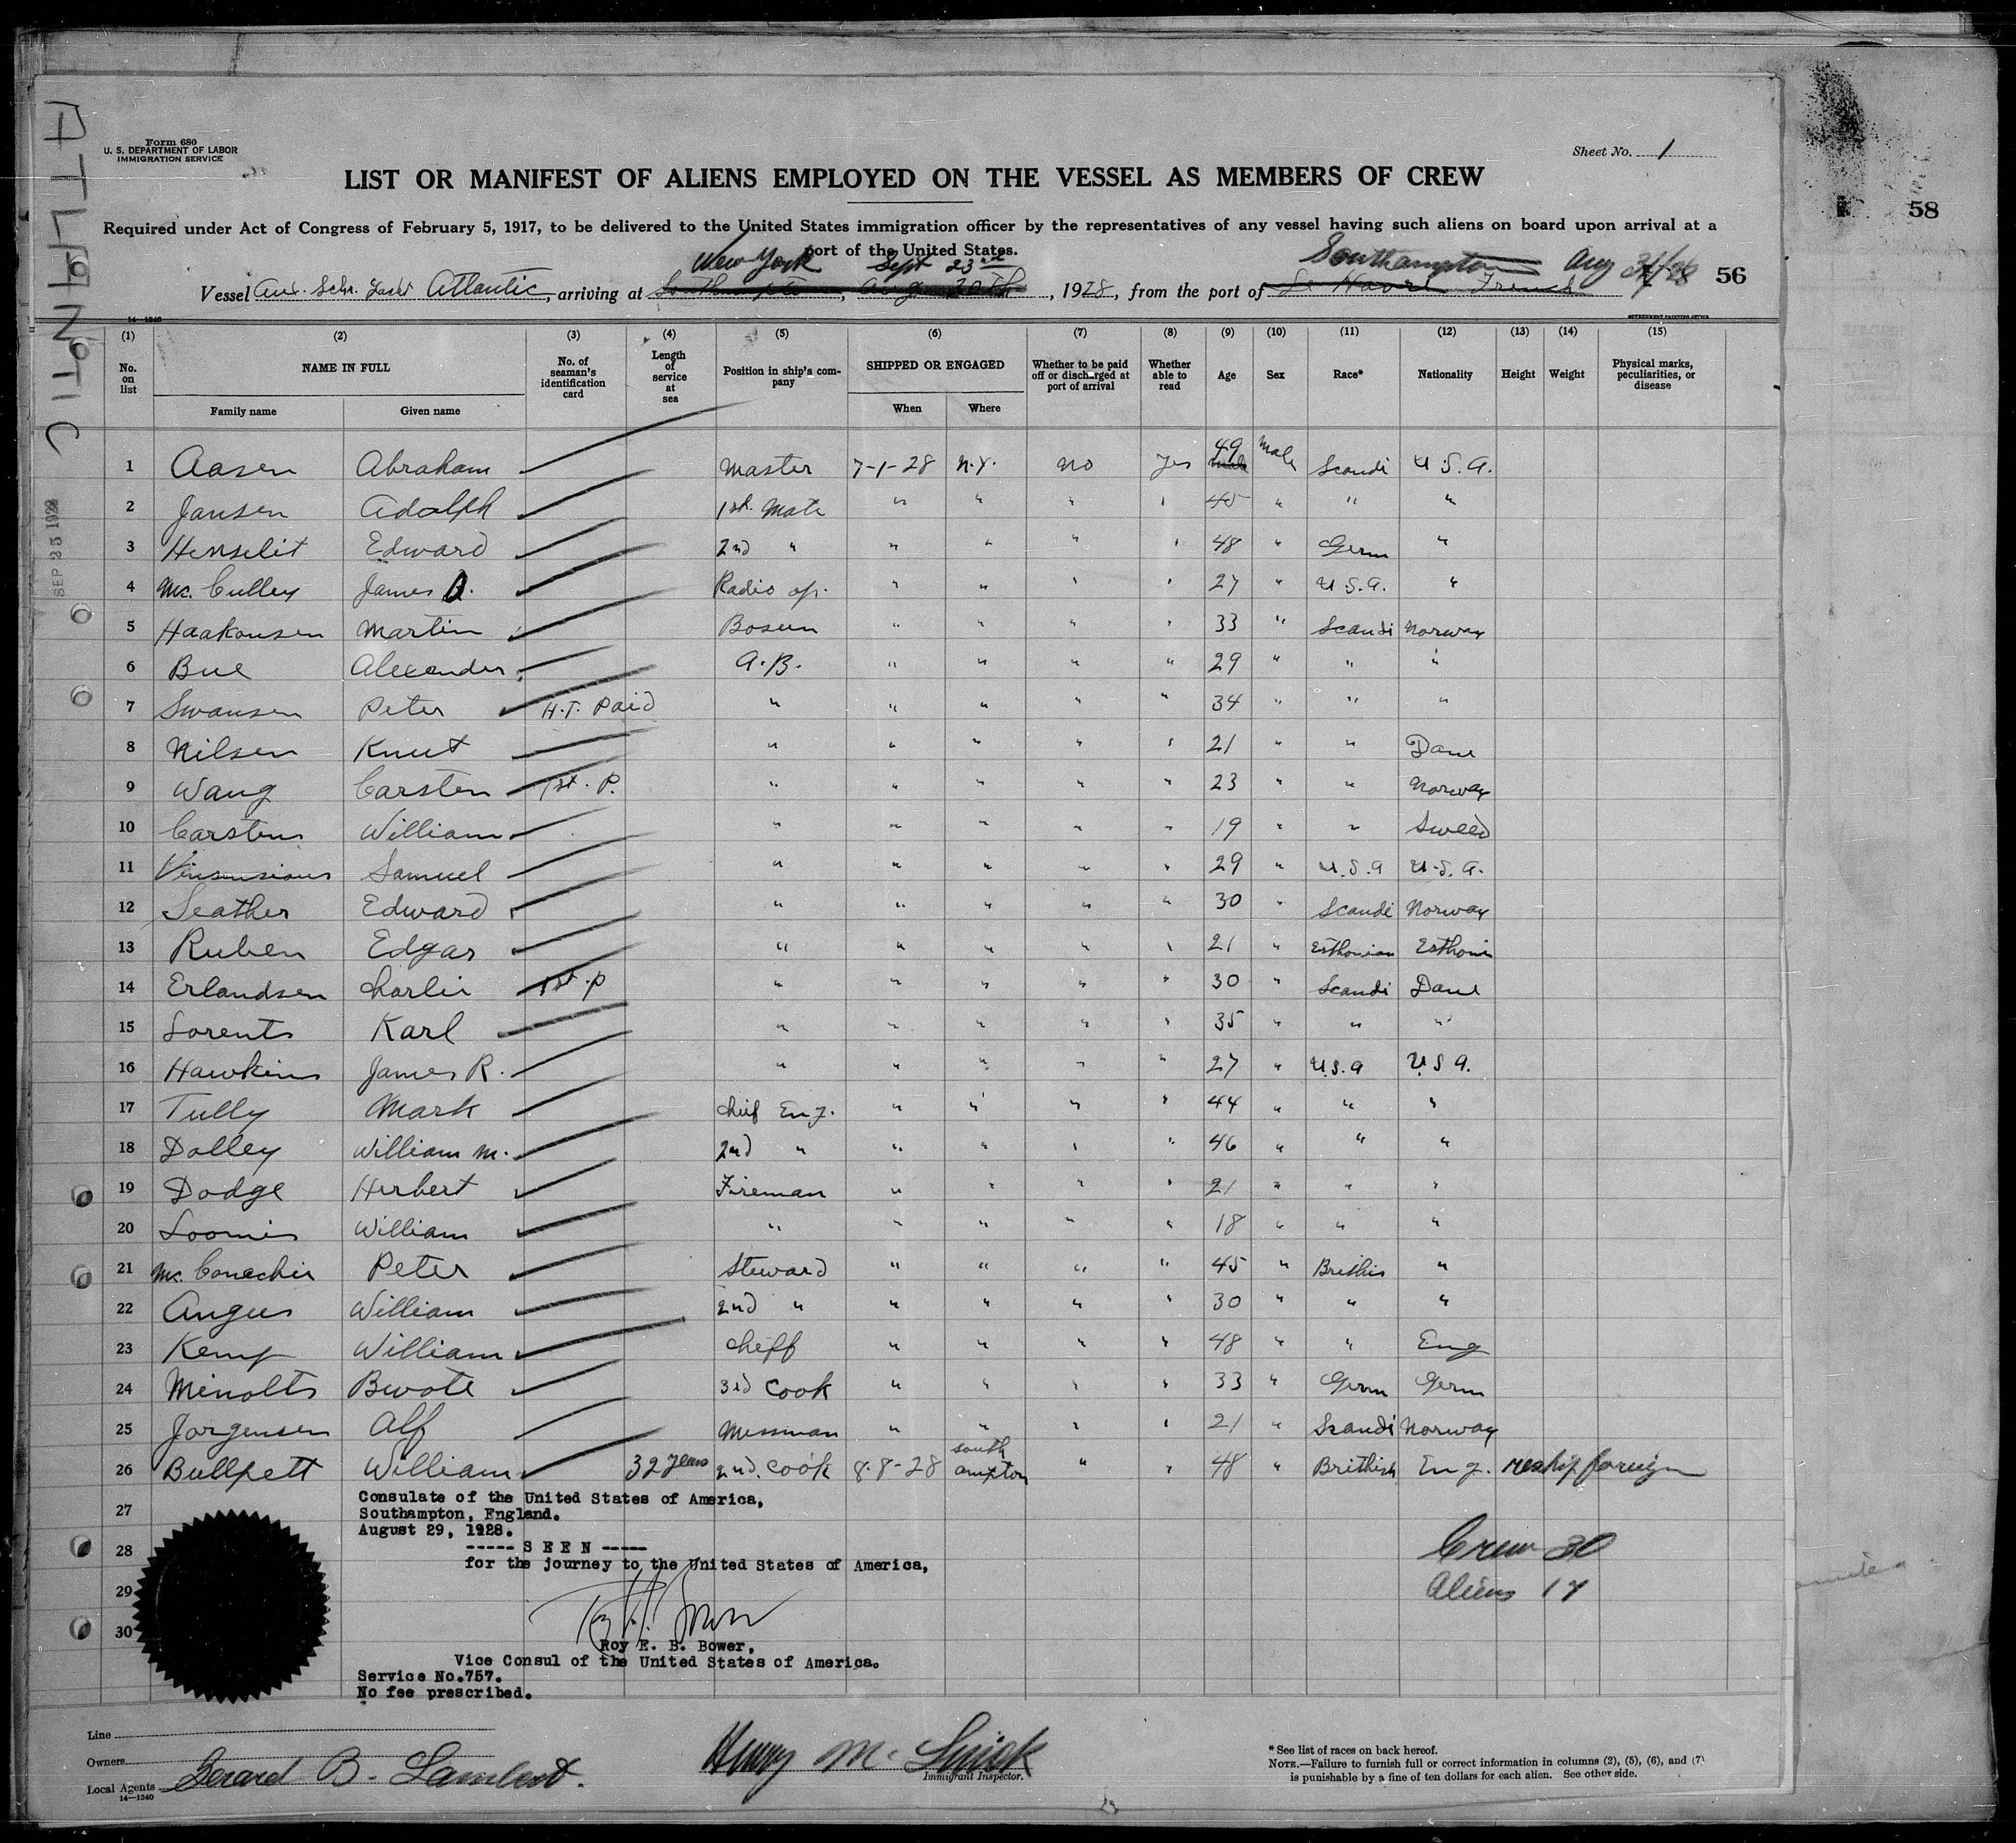 ATLANTIC
SEP 25 1928
Form 680
U. S. DEPARTMENT OF LABOR
IMMIGRATION SERVICE
Sheet No. 1
LIST OR MANIFEST OF ALIENS EMPLOYED ON THE VESSEL AS MEMBERS OF CREW
58
Required under Act of Congress of February 5, 1917, to be delivered to the United States immigration officer by the representatives of any vessel having such aliens on board upon arrival at a
port of the United States.
New York Sept 23rd Southampton Aug 31/28 56
Vessel Aux. Schr. Yacht Atlantic, arriving at Southampton, Aug 20th, 1928, from the port of Le Havre French
14—1240 GOVERNMENT PRINTING OFFICE
(1) (2) (3) (4) (5) (6) (7) (8) (9) (10) (11) (12) (13) (14) (15)
No. on list NAME IN FULL No. of seaman's identification card Length of service at sea Position in ship's company SHIPPED OR ENGAGED Whether to be paid off or discharged at port of arrival Whether able to read Age Sex Race* Nationality Height Weight Physical marks, peculiarities, or disease
Family name Given name When Where
1 Aasen Abraham Master 7-1-28 N.Y. no yes 49 male Scandi U.S.A.
2 Jansen Adolph 1st. Mate " " " " 45 " " "
3 Henselit Edward 2nd " " " " " 48 " Germ "
4 Mc. Culley James D. Radio op. " " " " 27 " U.S.A. "
5 Haakonsen Martin Bosun " " " " 33 " Scandi Norway
6 Bue Alexander A.B. " " " " 29 " " "
7 Swansen Peter H.T. Paid " " " " " 34 " " "
8 Nilsen Knut " " " " " 21 " " Dane
9 Waug Carsten 1st. P. " " " " " 23 " " Norway
10 Carstens William " " " " " 19 " " Sweed
11 Samuel " " " " " 29 " U.S.A U.S.A.
12 Seather Edward " " " " " 30 " Scandi Norway
13 Ruben Edgar " " " " " 21 " Esthonian Esthonin
14 Erlandsen Charlie 1st. P " " " " " 30 " Scandi Dane
15 Lorents Karl " " " " " 35 " " "
16 Hawkins James R. " " " " " 27 " U.S.A U.S.A.
17 Tully Mark Chief Eng. " " " " 44 " " "
18 Dolley William M. 2nd " " " " " 46 " " "
19 Dodge Herbert Fireman " " " " 21 " " "
20 Loomis William " " " " " 18 " " "
21 Mc. Conachie Peter Steward " " " " 45 " Brithis "
22 Angus William 2nd " " " " " 30 " " "
23 Kemp William Cheff " " " " 48 " " Eng
24 Minolts Bwote 3rd Cook " " " " 33 " Germ Germ
25 Jorgensen Alf Messman " " " " 21 " Scandi Norway
26 Bullpett William 32 years 2nd. Cook 8-8-28 South ampton " " 48 " Brithish Eng. reship foreign
27 Consulate of the United States of America,
Southampton, England.
August 29, 1928.
28 ----- S E E N -----
for the journey to the United States of America,
Crew 30
29 Aliens 17
30
Roy E. B. Bower,
Vice Consul of the United States of America.
Service No.757.
No fee prescribed.
Line
Owners
Local Agents Gerard B. Lambert.
14—1240
Henry Mc
Immigrant Inspector.
* See list of races on back hereof.
NOTE.—Failure to furnish full or correct information in columns (2), (5), (6), and (7)
is punishable by a fine of ten dollars for each alien. See other side.